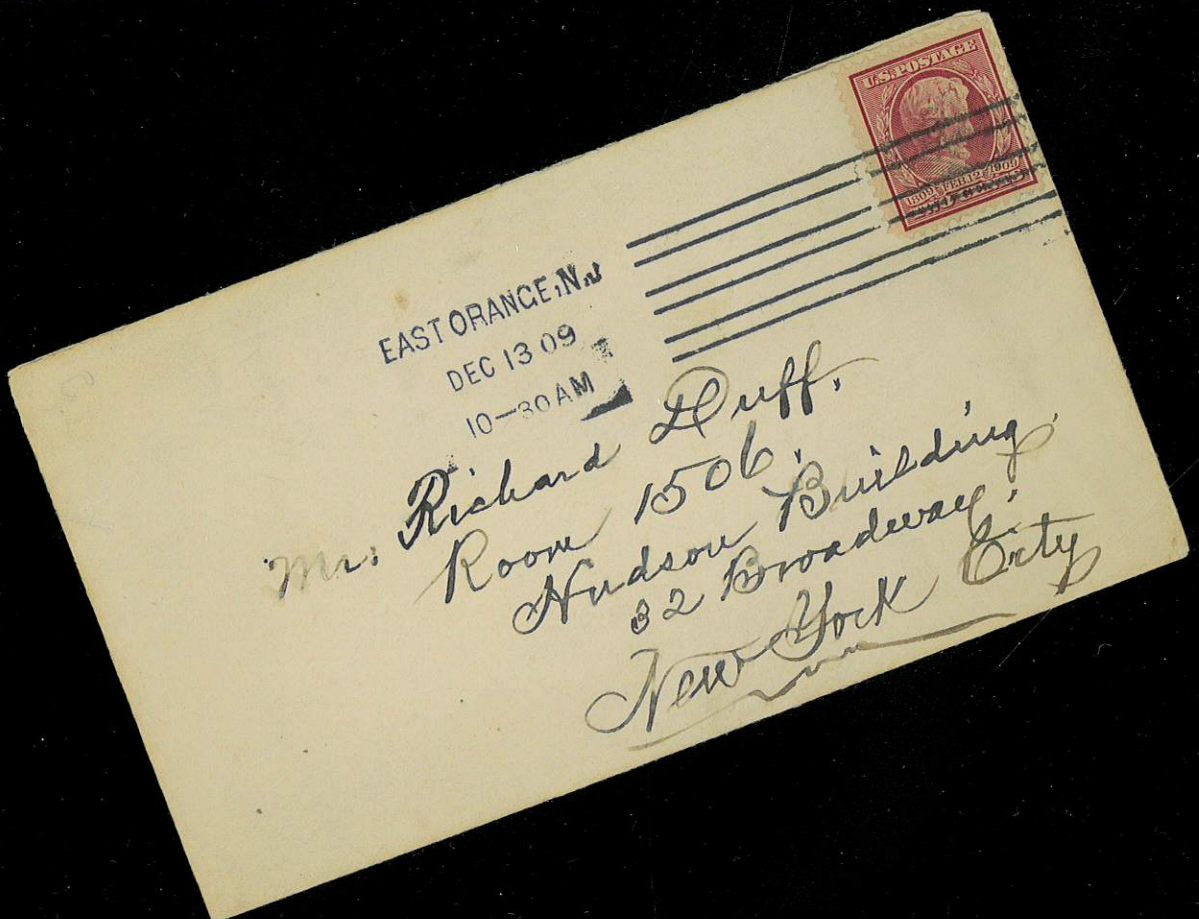 U.S.POSTAGE
1809·FEB.12·1909
EAST ORANGE, N.J
DEC 13 09
10—30AM
Mr. Richard Duff.
Room 1506.
Hudson Building.
32 Broadway.
New York City